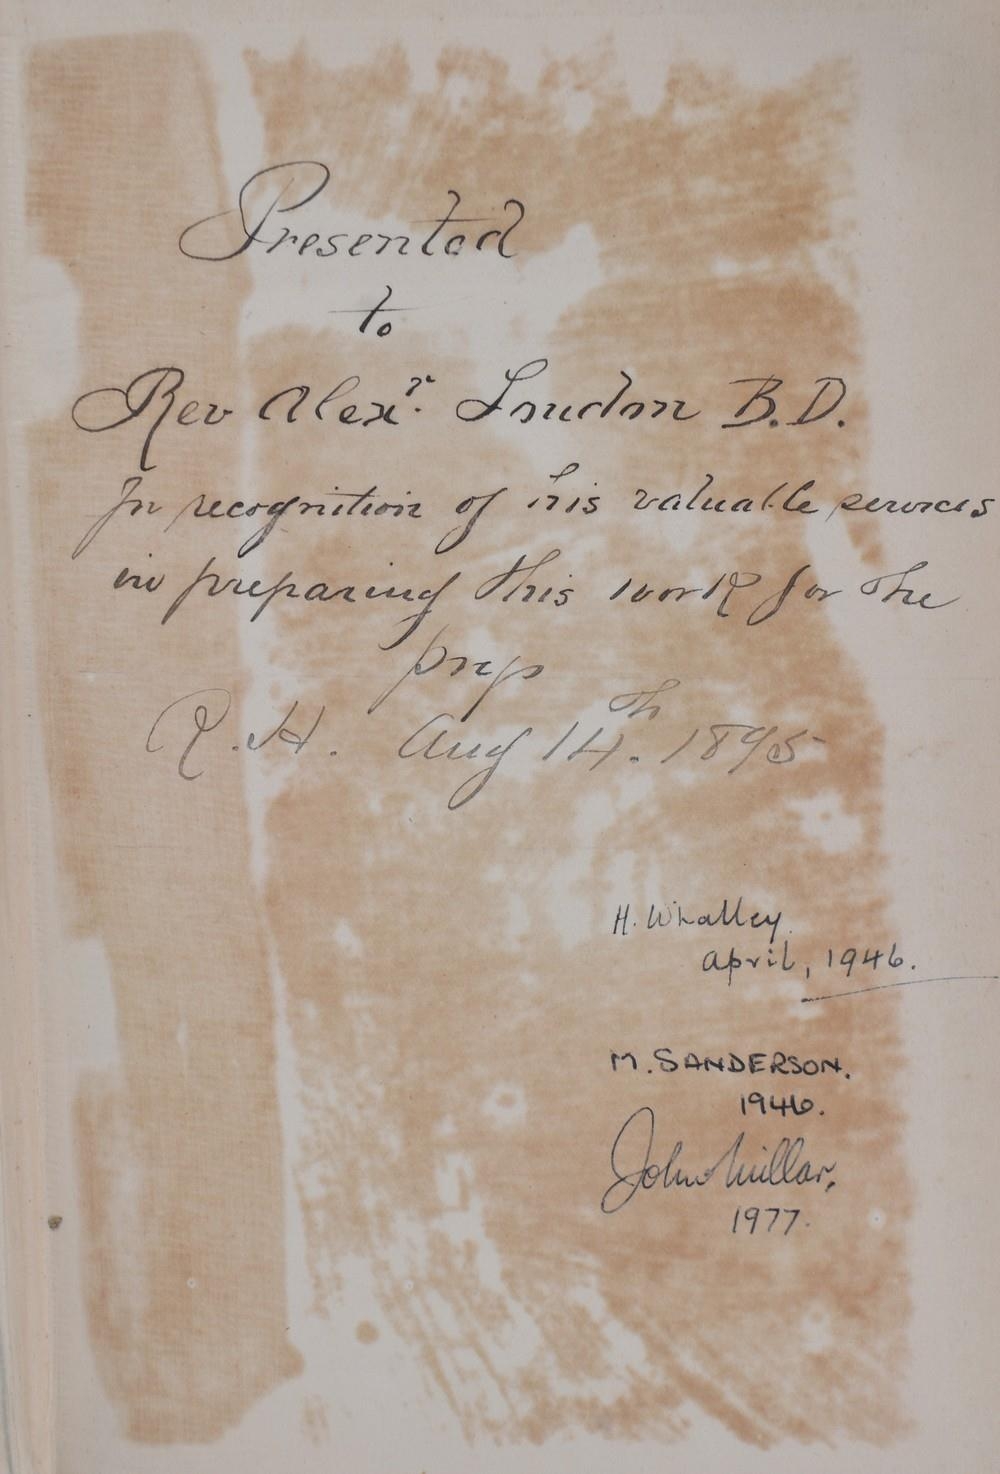 Presented
to
Rev Alexr. Loudon B.D.
In recognition of his valuable services
in preparing this work for the
press
R.H. Aug 14th. 1895
H. Whalley.
April, 1946.
M. SANDERSON.
1946.
John Millar,
1977.